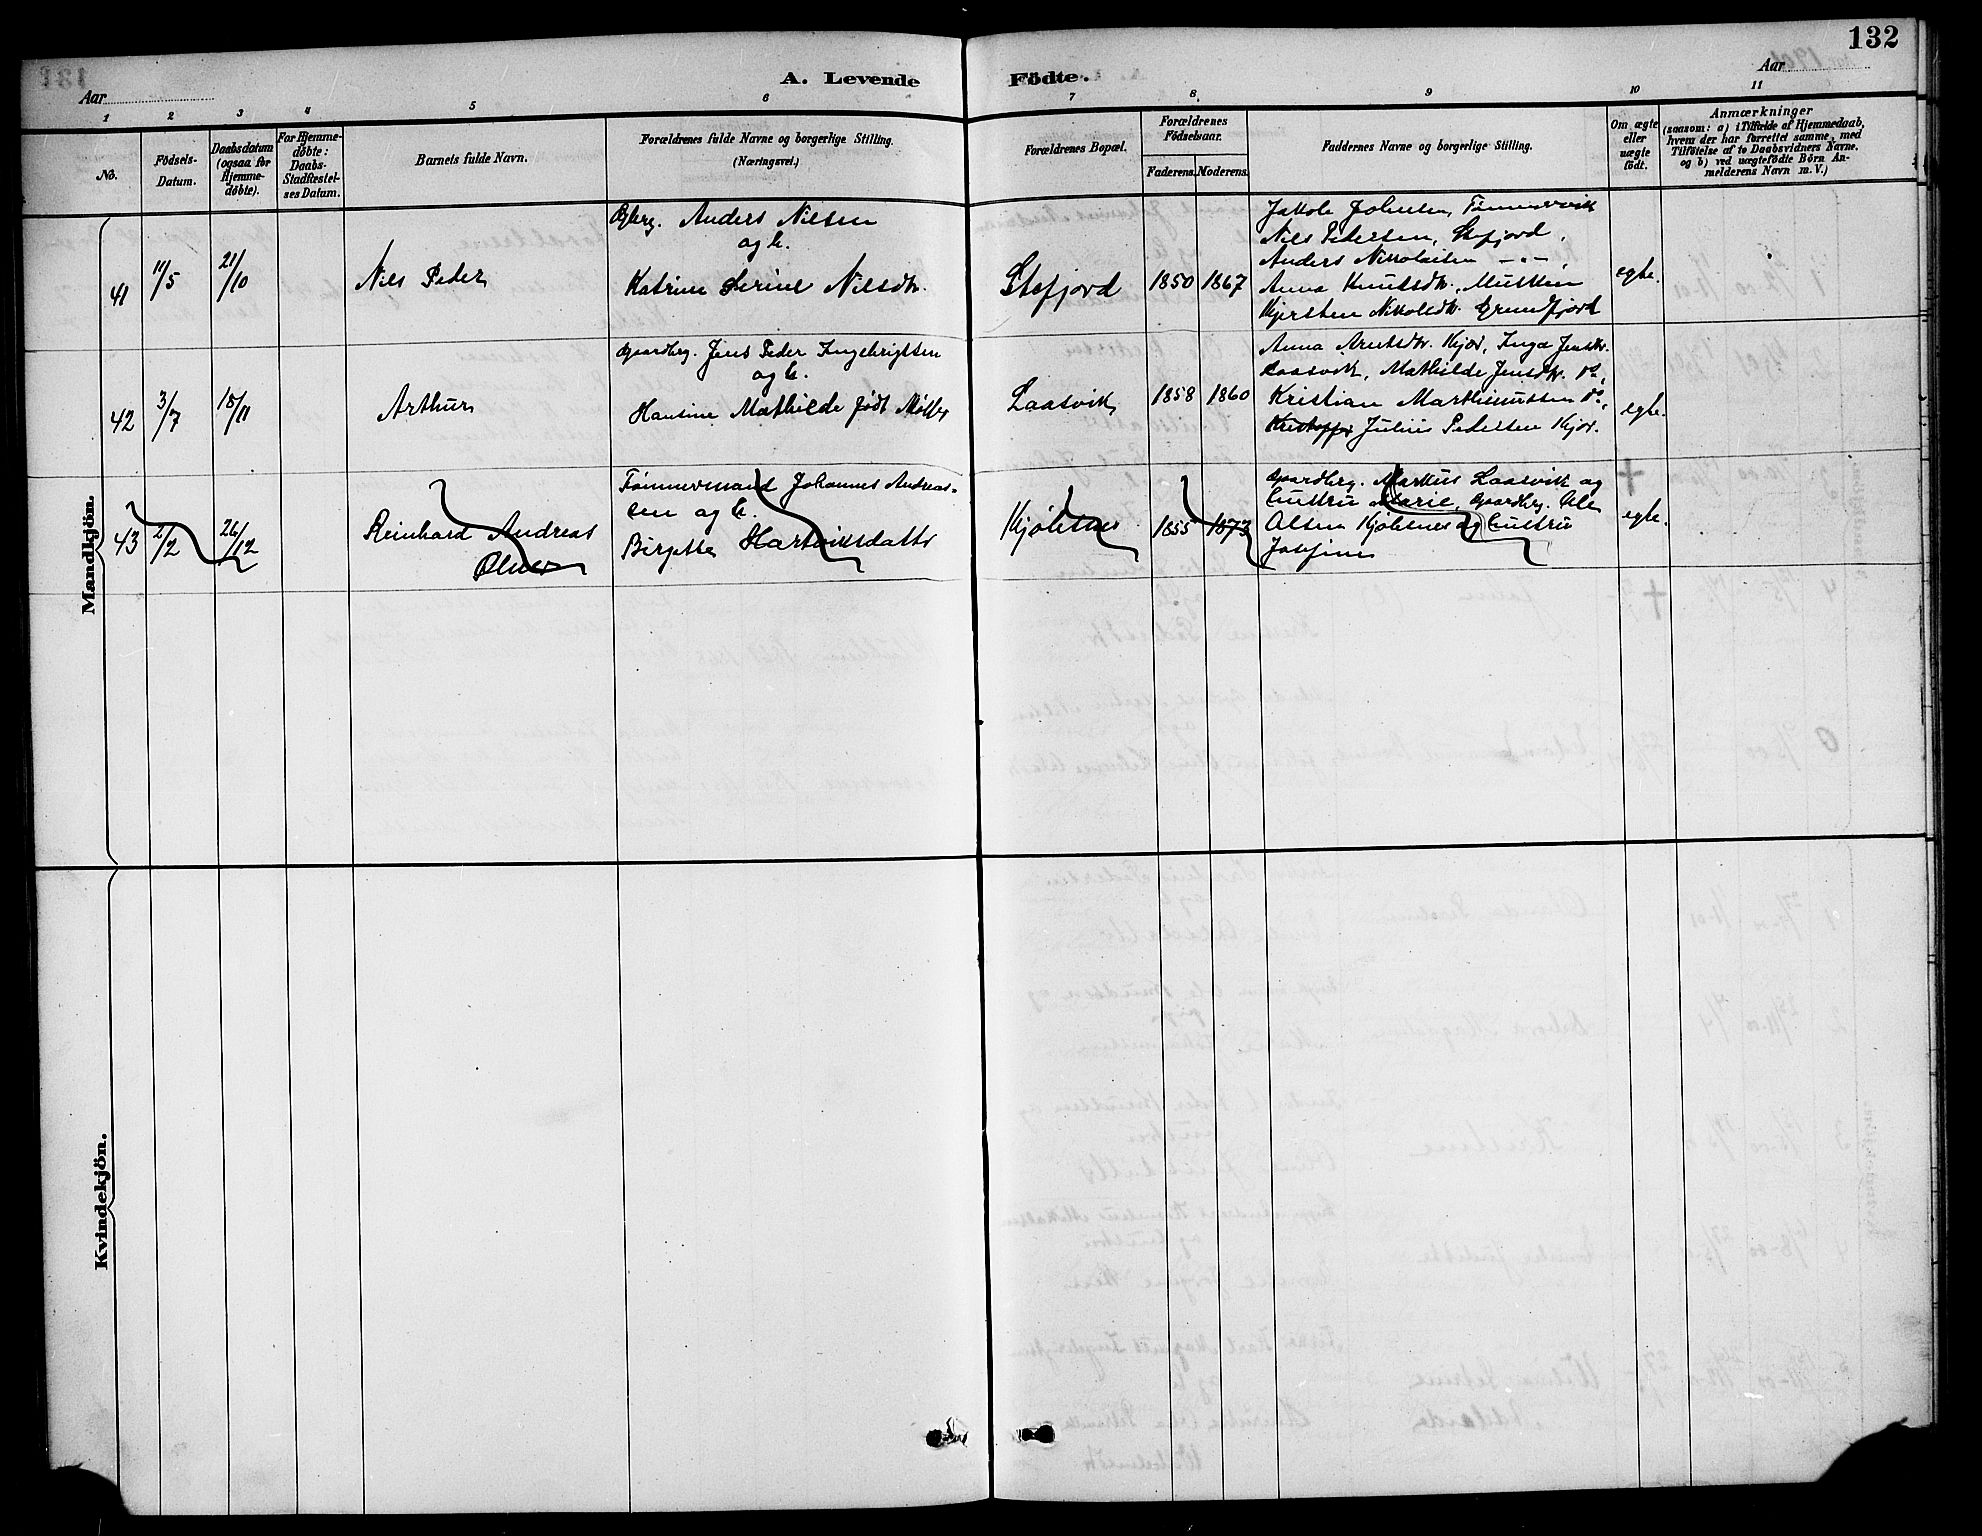 132
A. Levende Födte.
Aar
Aar
1 2 3 4 5 6 7 8. 9 10 11
No.
Födsels-Datum.
Daabsdatum (ogsaa for Hjemmedöbte).
For Hjemmedöbte: Daabs-Stadfæstelses Datum.
Barnets fulde Navn.
Forældrenes fulde Navne og borgerlige Stilling. (Næringsvei.)
Forældrenes Bopæl.
Forældrenes Födselsaar.
Faderens. Moderens.
Faddernes Navne og borgerlige Stilling.
Om ægte eller uægte født.
Anmærkninger
(saasom: a) i Tilfælde af Hjemmedaab, hvem der har forrettet samme, med Tilföielse af to Daabsvidners Navne, og b) ved uægtefödte Börn Anmelderens Navn m. V.)
Mandkjön.
41 11/5 21/10
Nils Peder
Anders Nilsen
og h.
Katrine Serine Nilsdtr.
Stefjord 1850 1867
Jakob Johnsen,
Nils Pedersen, Stefjord,
Anders Nikolaisen -"-,
Anna Knutsdtr.
Kjersten Nikolsdtr. Grundfjord
egte.
42 3/7 18/11
Arthur
Gaardbrg. Jens Peder Ingebrigtsen
og h.
Hansine Mathilde født Møller
Laasvik 1858 1860
Anna Arntsdtr. Kjør, Inga Jensdtr.
Laasvik, Mathilde Jensdtr. do,
Kristian Marthinussen do,
Kristoffer Julius Pedersen Kjør.
egte.
43 2/2 26/12
Reinhard Andreas
Tømmermand Johannes Andreas-
sen og h.
Birgitte Hartviksdatter
Kjölesnes 1855 1873
Gaardbrg. Markus Laasvik og
Hustru Marie, Gaardbrg. Ole
Olsen Kjölesnes og Hustru
Josefine
egte.
Kvindekjön.